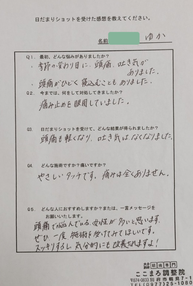 日だまりショットを受けた感想を教えてください。
名前 ゆか
Q1. 最初、どんな悩みがありましたか？
季節の変わり目に、頭痛、吐き気が
ありました。
頭痛がひどく寝込むこともありました。
Q2. 今までは、何をして対処していましたか？
痛み止めを服用していました。
Q3. 日だまりショットを受けて、どんな結果が得られましたか？
頭痛も軽くなり、吐き気はなくなりました。
Q4. どんな施術ですか？痛いですか？
やさしいタッチです。痛みは全くありません。
Q5. どんな人におすすめしますか？または、一言メッセージを
お願いいたします。
頭痛で悩んでる女性が多いと思います。
ぜひ一度 施術を受けてみてほしいです。
スッキリするし気分的にも改善されますよ！
ここまろ調整院